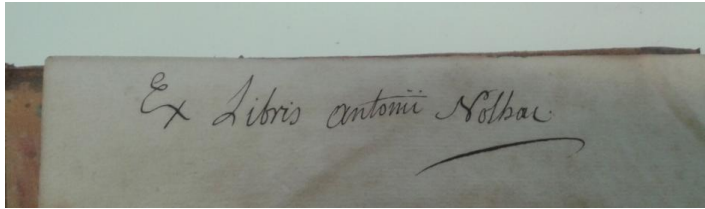 Ex Libris antonii Nolhac.